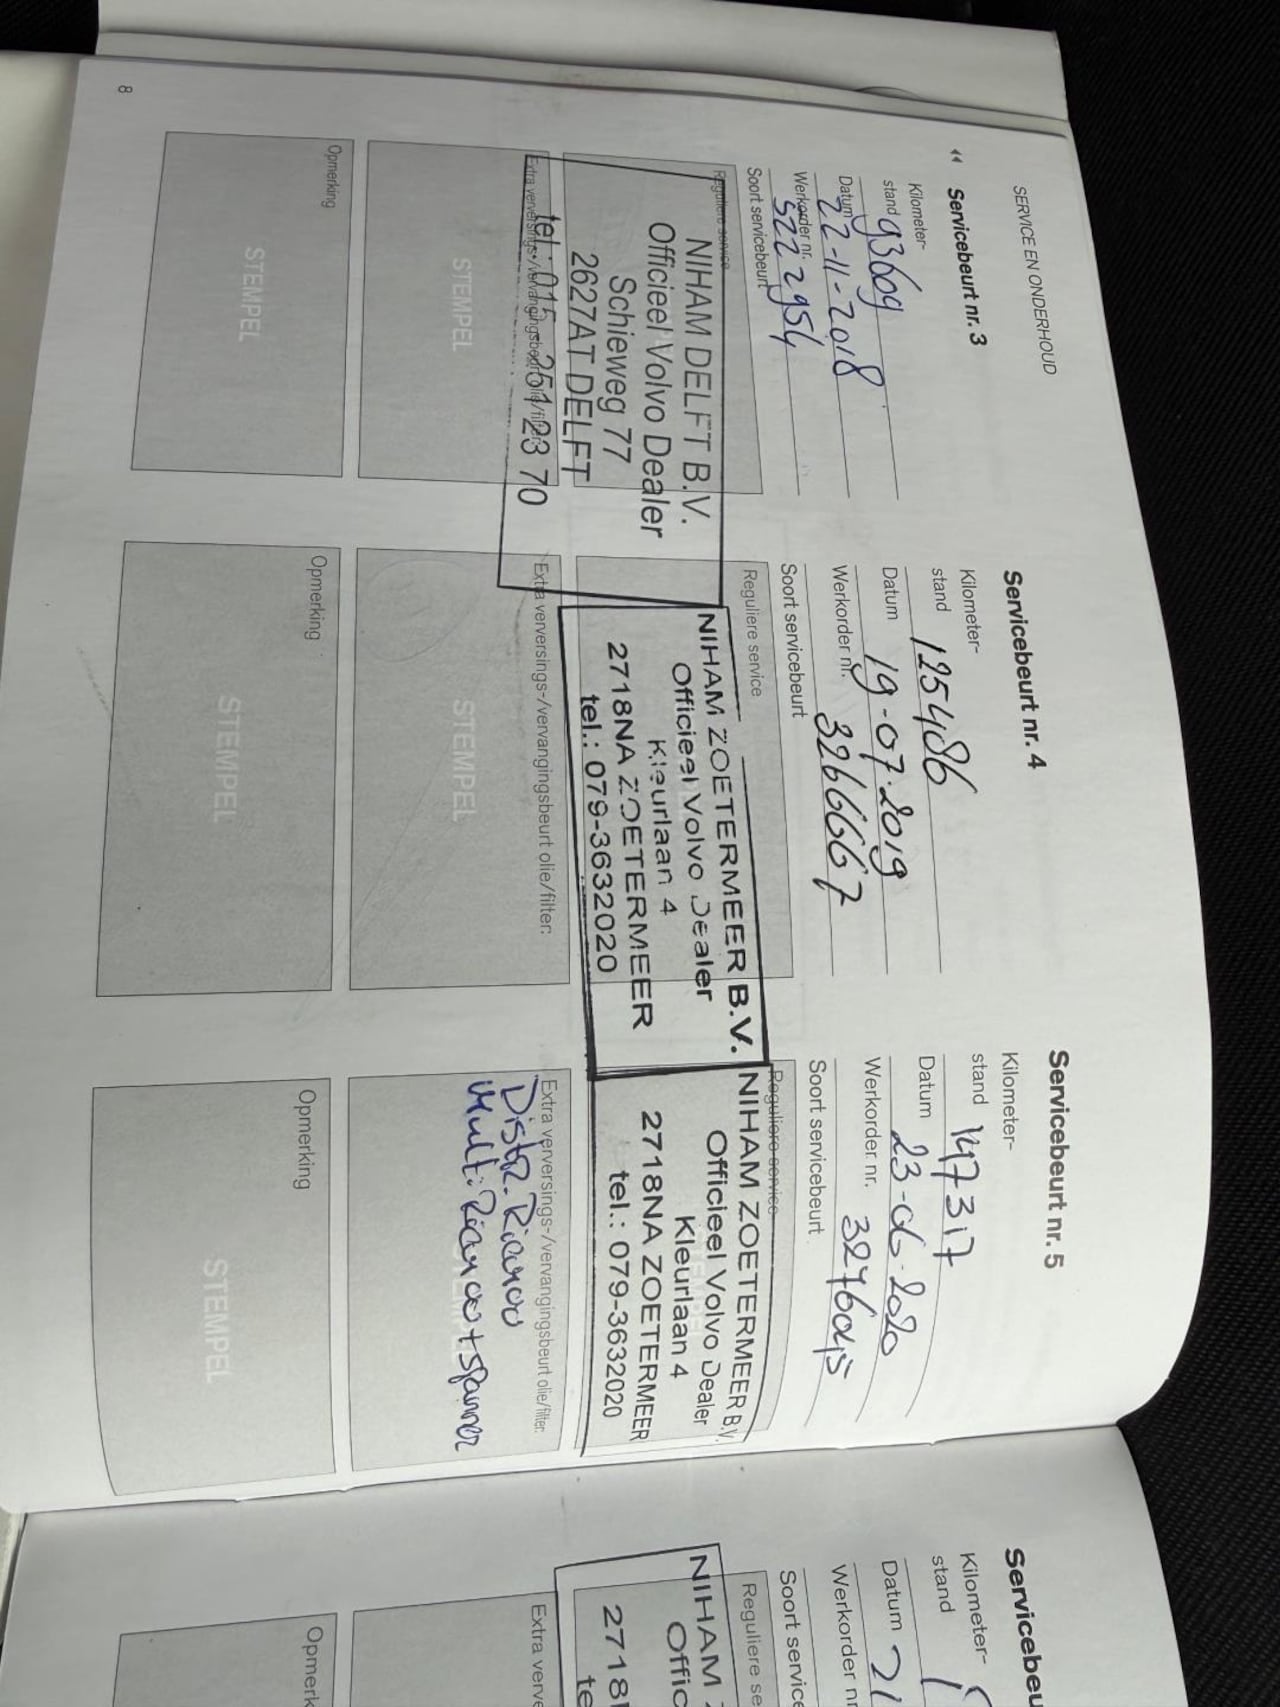 SERVICE EN ONDERHOUD
Servicebeurt nr. 3
Kilometer-
stand 93609
Datum 22-11-2018
Werkorder nr. 522 2954
Soort servicebeurt
Reguliere service
NIHAM DELFT B.V.
Officieel Volvo Dealer
Schieweg 77
2627AT DELFT
tel.: 015-251 23 70
Extra verversings-/vervangingsbeurt olie/filter:
STEMPEL
Opmerking
STEMPEL
8
Servicebeurt nr. 4
Kilometer-
stand 125486
Datum 19-07-2019
Werkorder nr. 3266667
Soort servicebeurt
Reguliere service
NIHAM ZOETERMEER B.V.
Officieel Volvo Dealer
Kleurlaan 4
2718NA ZOETERMEER
tel.: 079-3632020
Extra verversings-/vervangingsbeurt olie/filter:
STEMPEL
Opmerking
STEMPEL
Servicebeurt nr. 5
Kilometer-
stand 147317
Datum 23-06-2020
Werkorder nr.
Soort servicebeurt
Reguliere service
NIHAM ZOETERMEER B.V.
Officieel Volvo Dealer
Kleurlaan 4
2718NA ZOETERMEER
tel.: 079-3632020
Extra verversings-/vervangingsbeurt olie/filter:
Distr. Riem
Multi Riem + spanner
Opmerking
STEMPEL
Servicebeu
Kilometer-
stand
Datum 21
Werkorder nr
Soort service
Reguliere se
NIHAM
Offic
2718
te
Extra verve
Opmerk